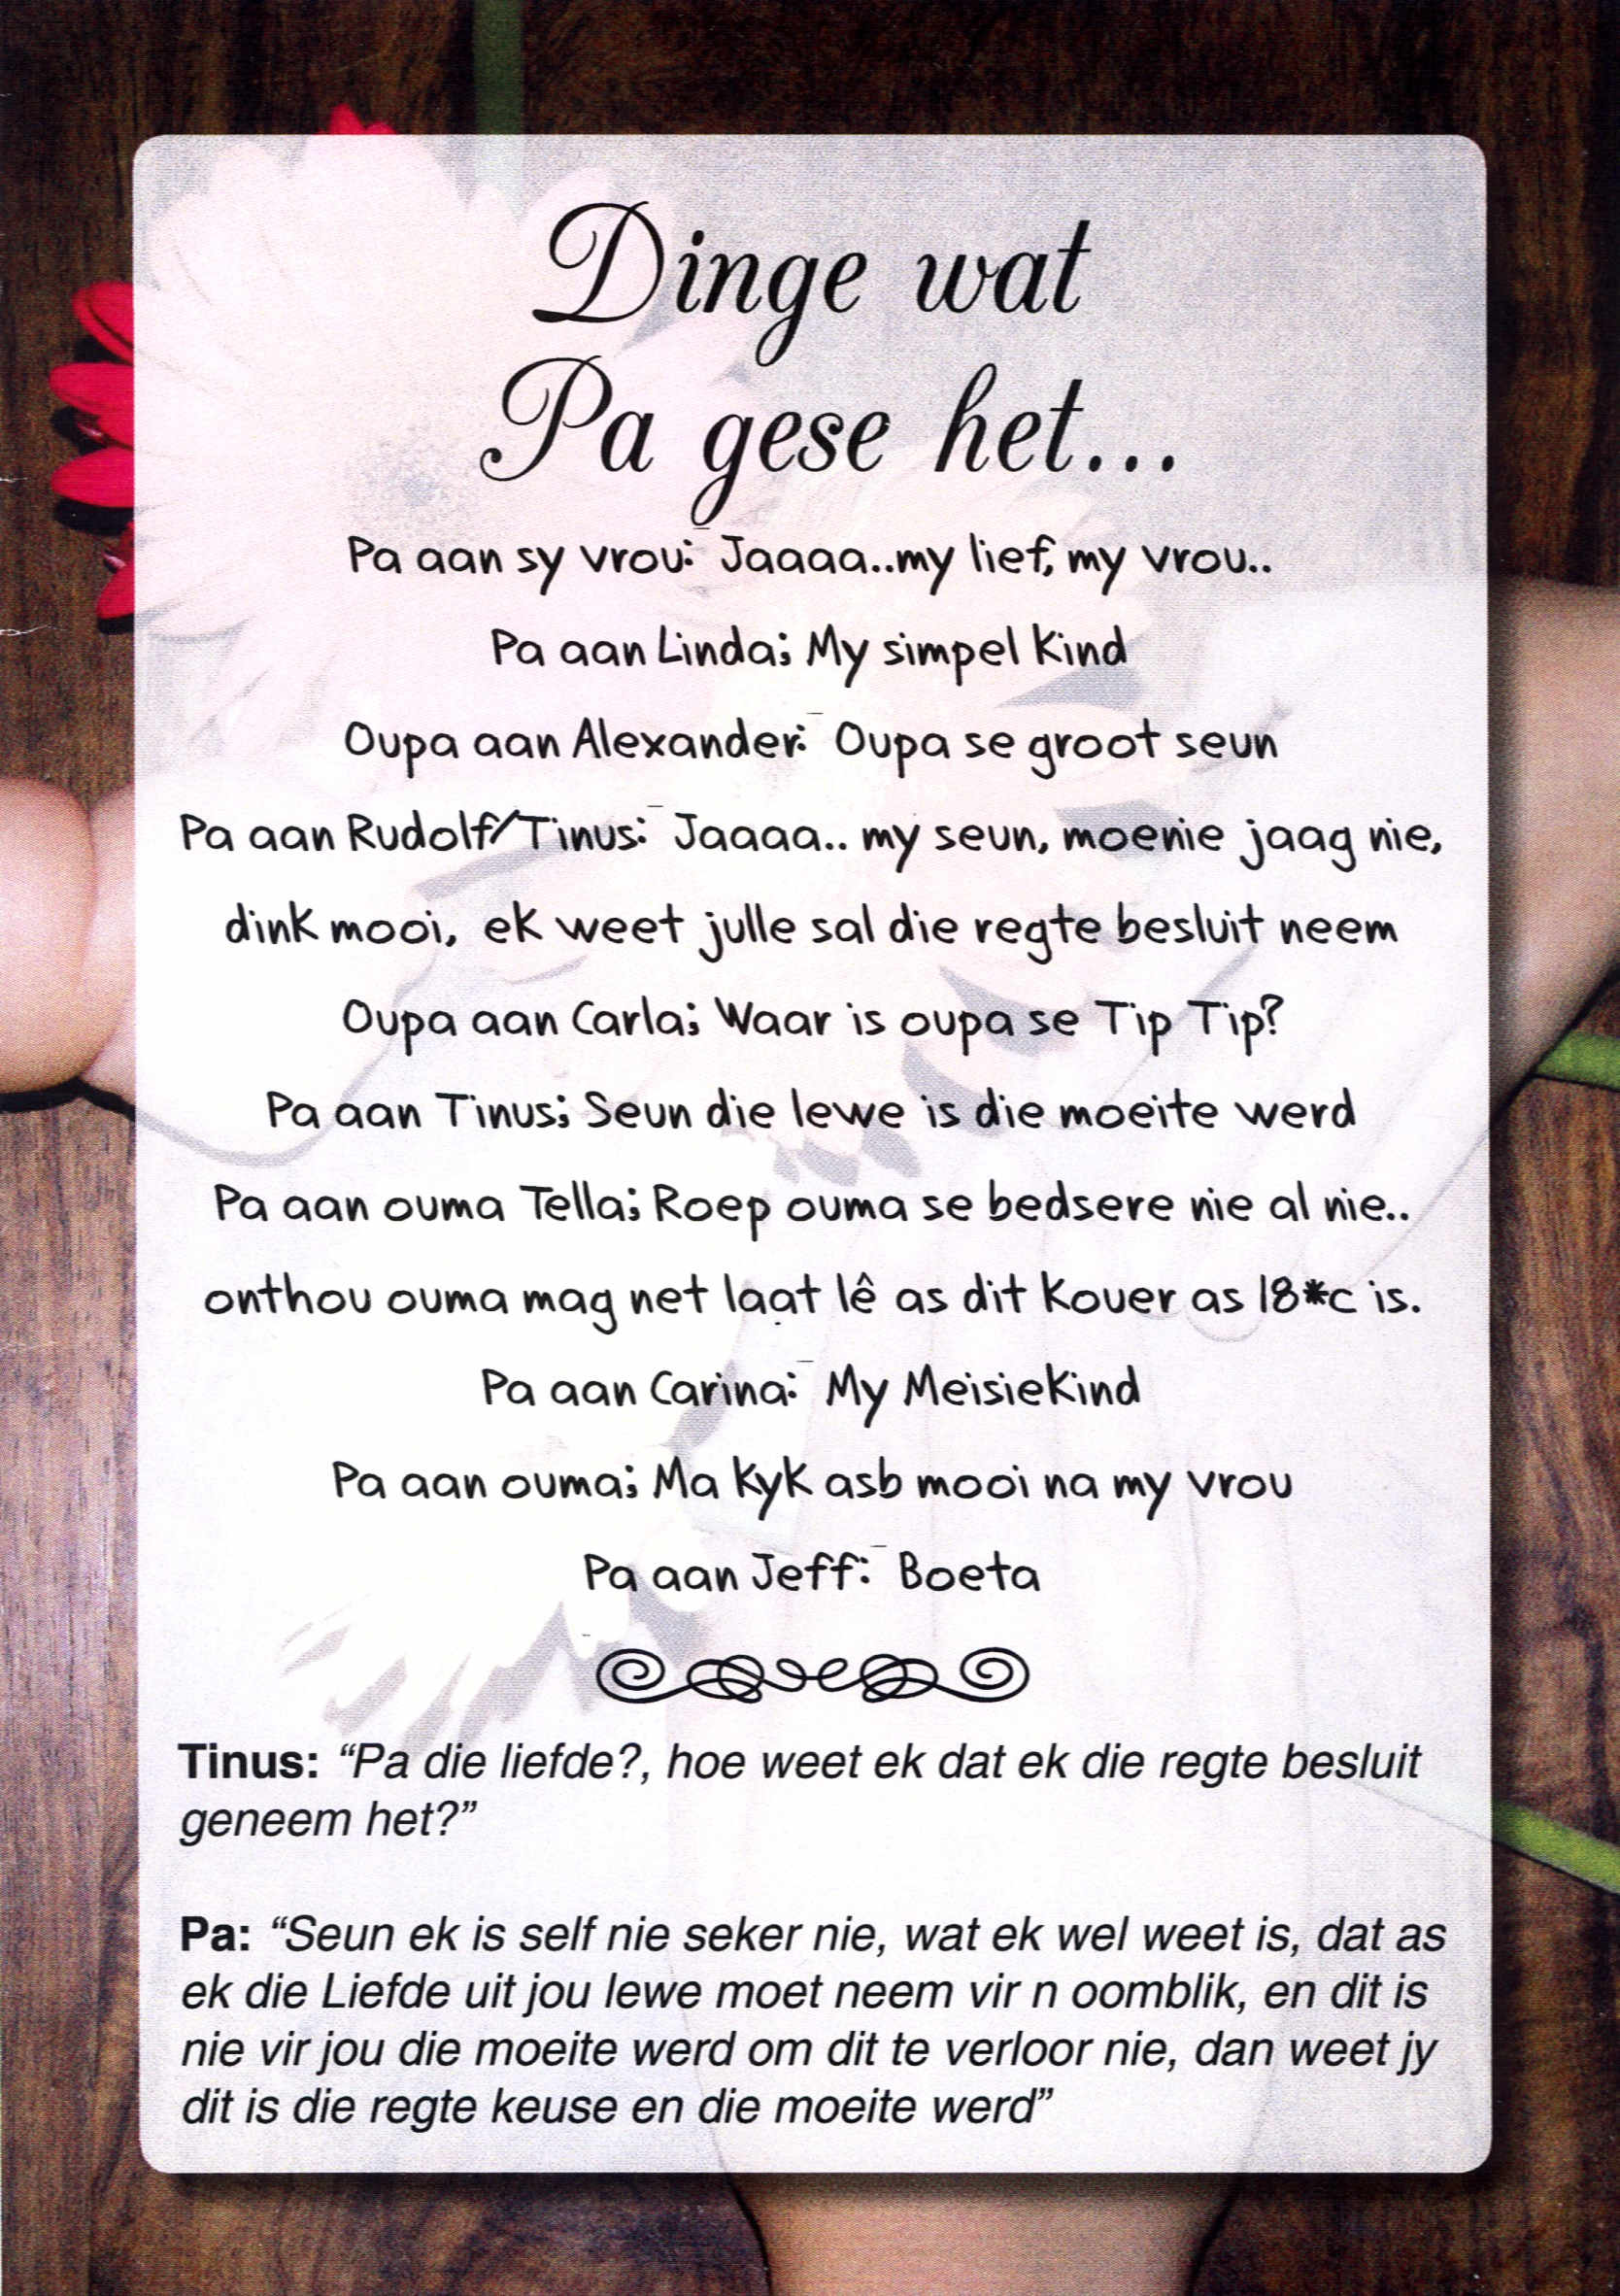 Dinge wat
Pa gese het...
Pa aan sy vrou:¯ Jaaaa..my lief, my vrou..
Pa aan Linda; My simpel kind
Oupa aan Alexander:¯ Oupa se groot seun
Pa aan Rudolf/Tinus:¯ Jaaaa.. my seun, moenie jaag nie,
dink mooi, ek weet julle sal die regte besluit neem
Oupa aan Carla; Waar is oupa se Tip Tip?
Pa aan Tinus; Seun die lewe is die moeite werd
Pa aan ouma Tella; Roep ouma se bedsere nie al nie..
onthou ouma mag net laat lê as dit kouer as 18*c is.
Pa aan Carina:¯ My Meisiekind
Pa aan ouma; Ma kyk asb mooi na my vrou
Pa aan Jeff:¯ Boeta
Tinus: “Pa die liefde?, hoe weet ek dat ek die regte besluit
geneem het?”
Pa: “Seun ek is self nie seker nie, wat ek wel weet is, dat as
ek die Liefde uit jou lewe moet neem vir n oomblik, en dit is
nie vir jou die moeite werd om dit te verloor nie, dan weet jy
dit is die regte keuse en die moeite werd”